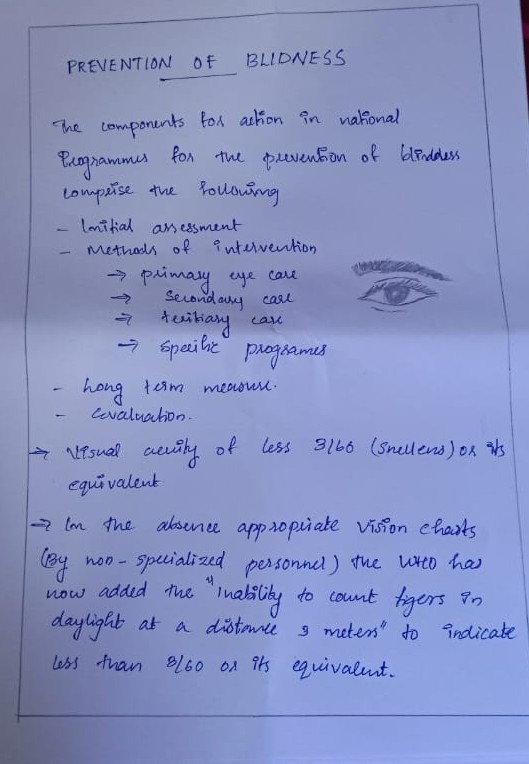 PREVENTION OF BLIDNESS
The components for action in national
Programmes for the prevention of blindness
comprise the following
- Initial assessment
- Methods of intervention
→ primary eye care
→ Secondary care
→ teritiary care
→ Specific programes
- Long term measure.
- Evaluation.
→ Visual acuity of less 3/60 (Snellens) or its
equivalent
→ In the absence appropriate vision charts
(By non-specialized personnel) the WHO has
now added the "inability to count figers in
daylight at a distance 3 meters" to indicate
less than 3/60 or its equivalent.